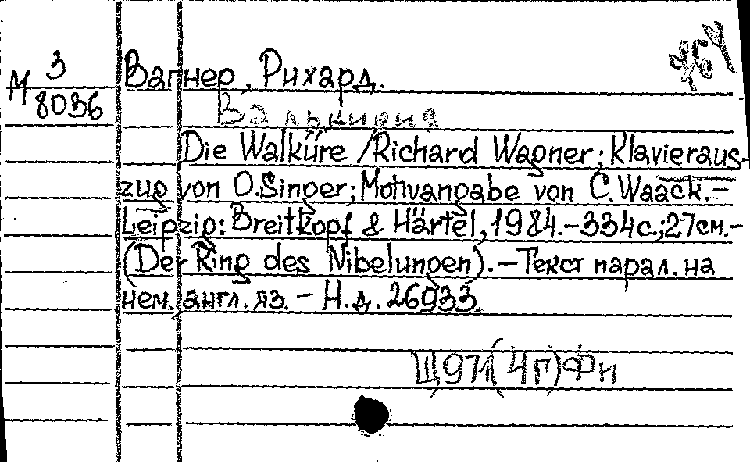 464
3
М 8036
Вагнер, Рихард.
Валькирия
Die Walküre / Richard Wagner; Klavieraus-
zug von O. Singer; Motivangabe von C. Waack. –
Leipzig: Breitkopf & Härtel, 1984. – 334 с.; 27 см. –
(Der Ring des Nibelungen). – Текст парал. на
нем., англ. яз. – Н. д. 26933.
Щ971(4Г)Фи